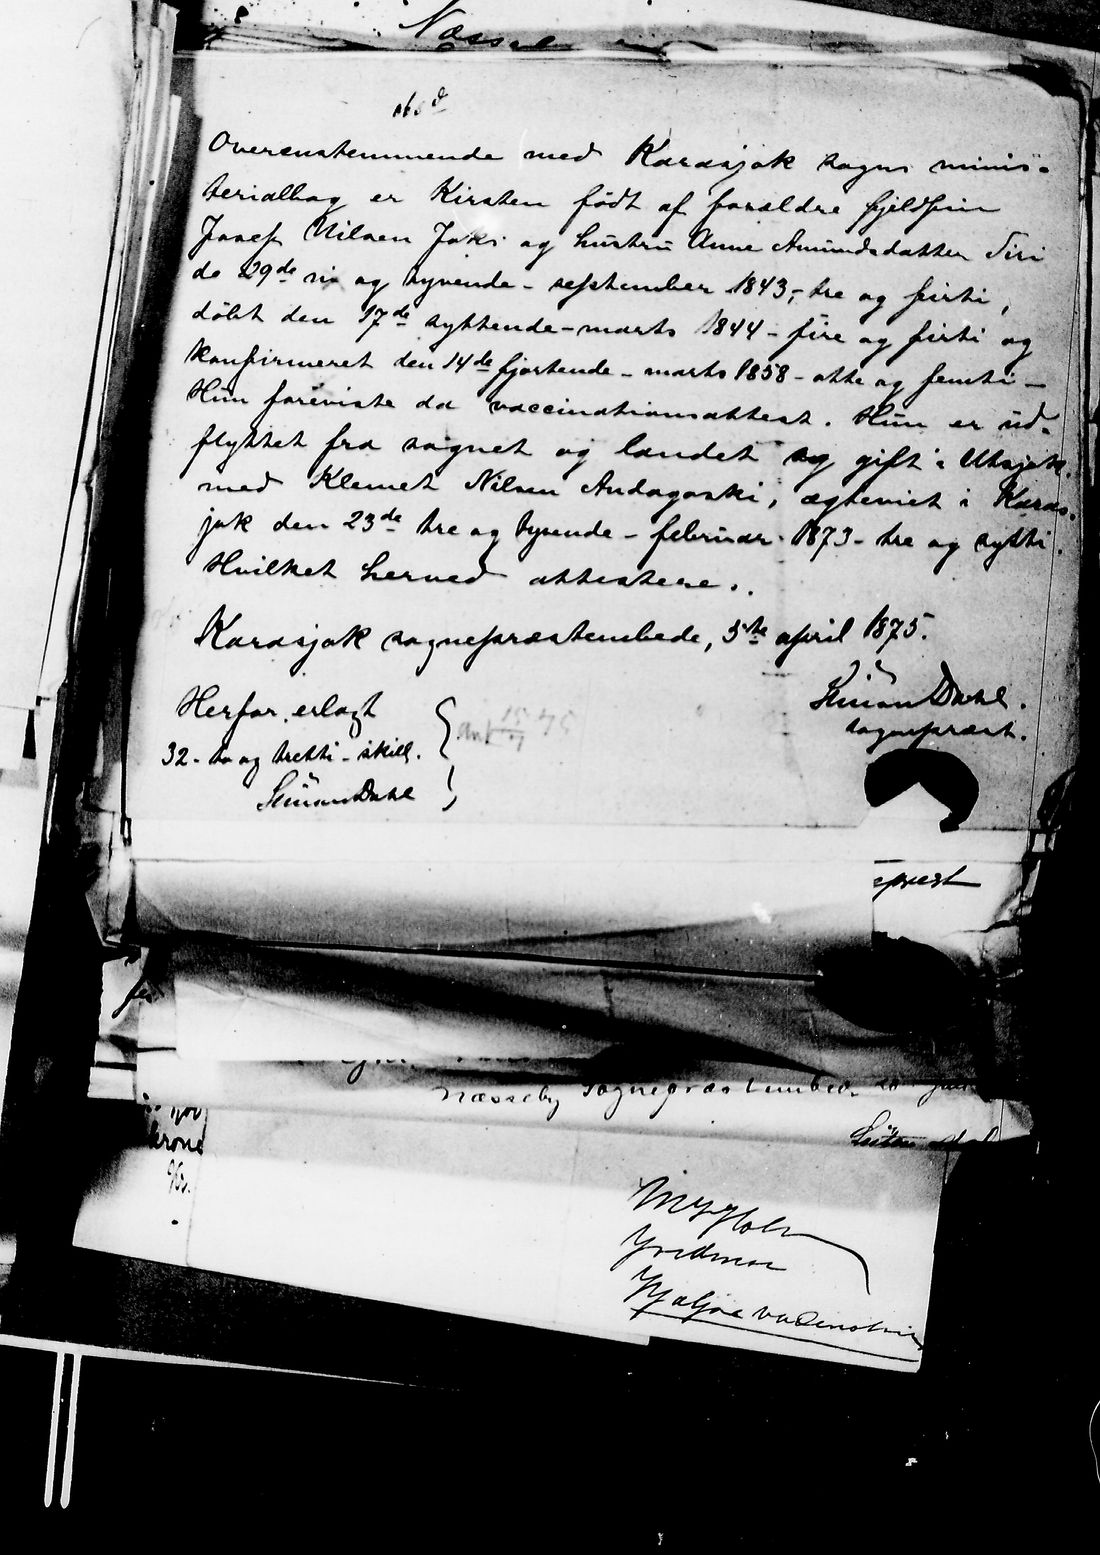 Overenstemmende med Karasjok sogns minis-
terialbog er Kirsten födt af forældre fjeldfin
Josef Nilsen Joks og hustru Anne Amundsdatter Siri
de 29de ni og tyvende - september 1843, - tre og firti,
döbt den 17de syttende - marts 1844 - fire og firti og
konfirmeret den 14de fjortende - marts 1858 - otte og femti -
Hun foreviste da vaccinationsattest. Hun er ud-
flyttet fra sognet og landet og gift i Utsjok
med Klemet Nilsen Andagoski, ægteviet i Karas-
jok den 23de tre og tyvende - februar 1873 - tre og sytti.
Hvilket herved attesteres.
Karasjok sogneprestembede, 5te april 1875.
Simon Dahl.
sogneprest.
Herfor erlagt
32 - to og tretti - skill.
Simon Dahl
Næsseby Sognepræstembede 20
krone